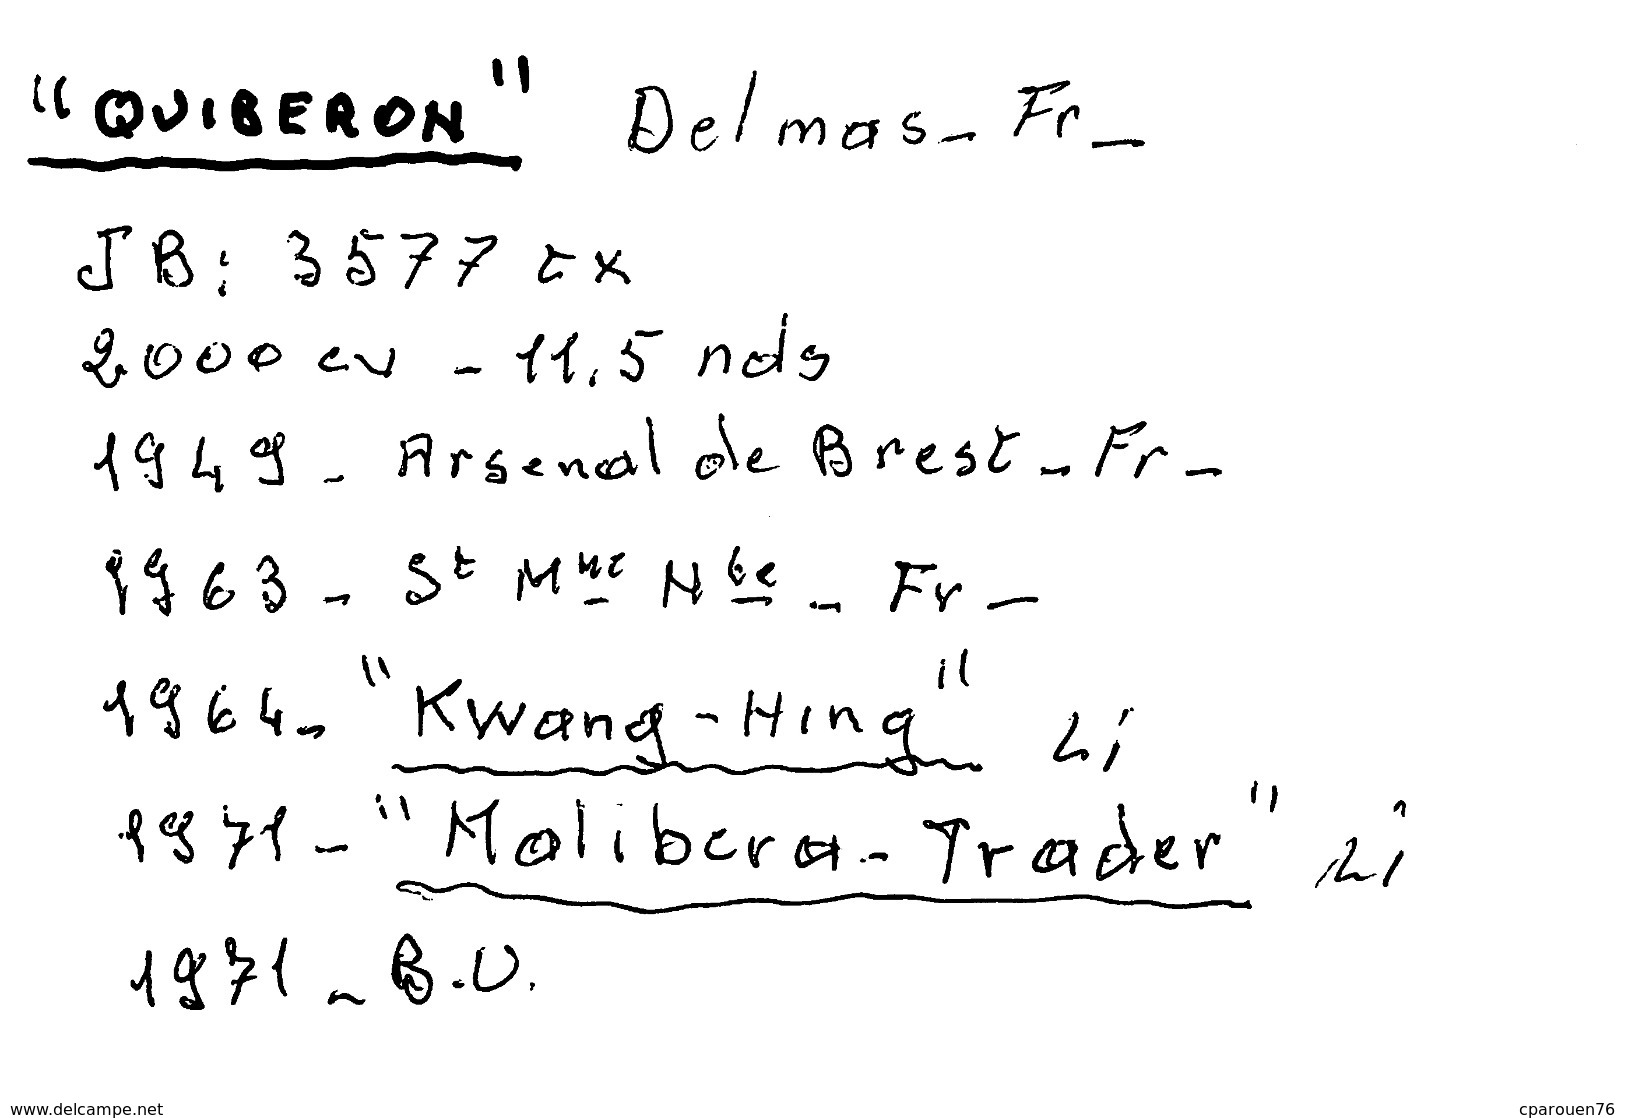 "QUIBERON" Delmas - Fr -
JB: 3577 tx
2000 cv - 11.5 nds
1949 - Arsenal de Brest - Fr -
1963 - St Mme Nbe - Fr -
1964 - "Kwang-Hing" Li
1971 - "Malibera-Trader" Li
1971 - B.V.
www.delcampe.net
cparouen76